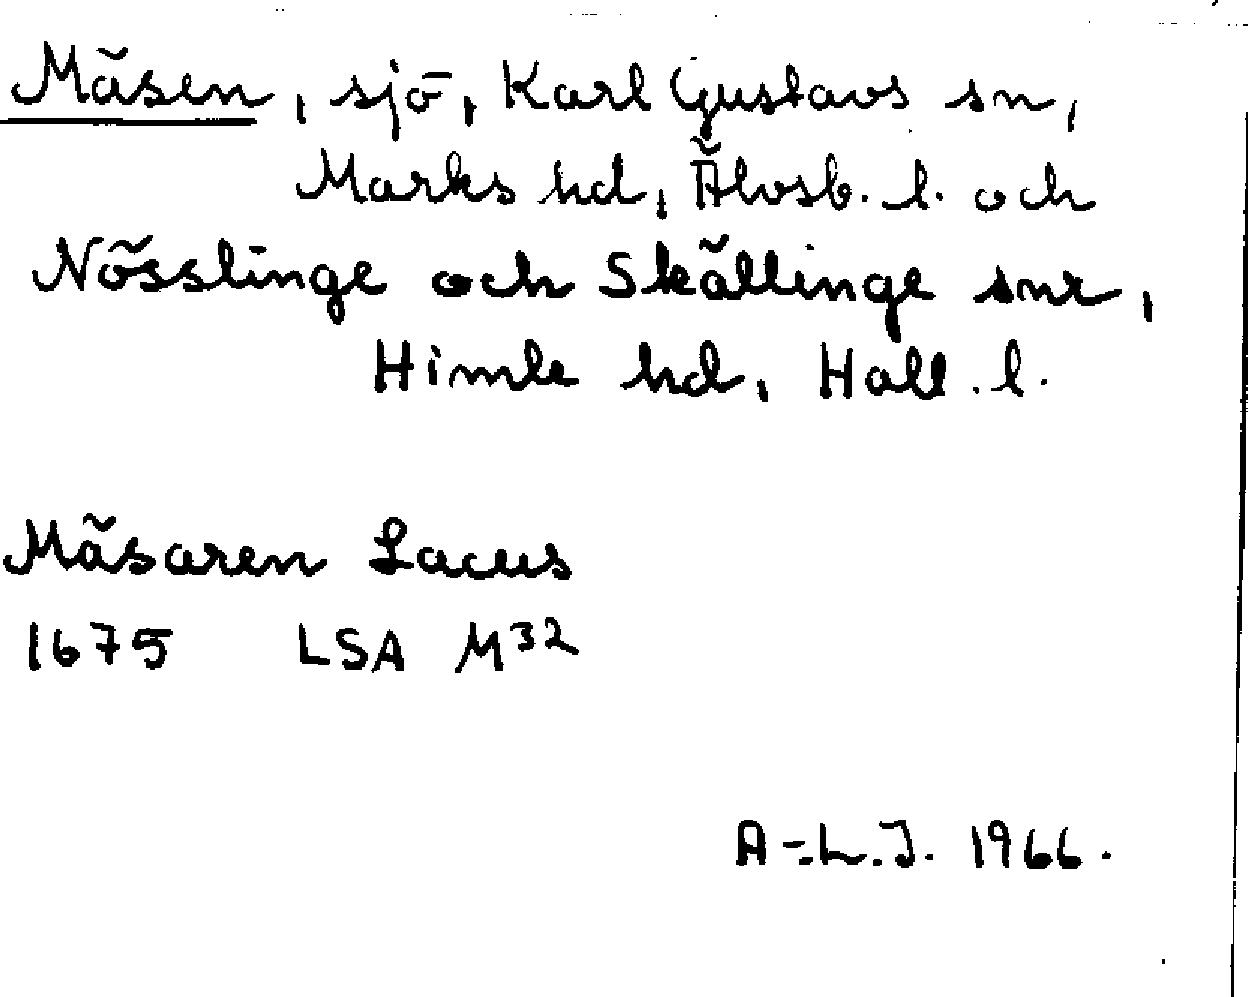 Mäsen, sjö, Karl Gustavs sn,
Marks hd, Älvsb. l. och
Nösslinge och Skällinge snr,
Himle hd, Hall. l.
Mäsaren Lacus
1675 LSA M32
A-L.J. 1966.